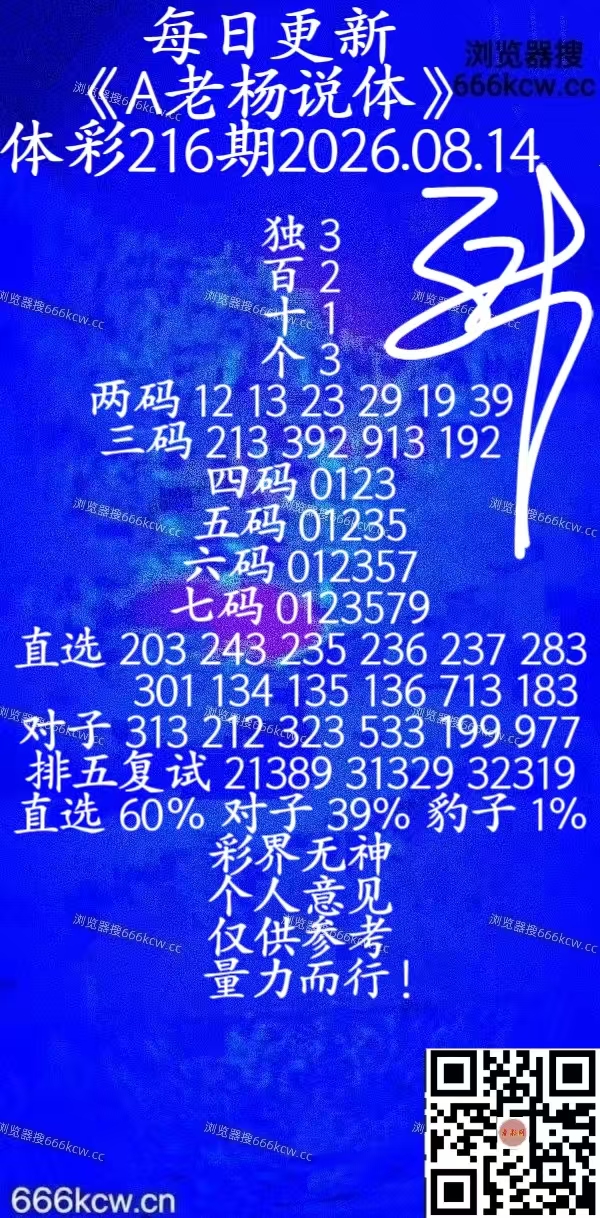 每日更新
浏览器搜
666kcw.cc
《A老杨说体》
体彩216期2026.08.14
独 3
百 2
十 1
个 3
两码 12 13 23 29 19 39
三码 213 392 913 192
四码 0123
五码 01235
六码 012357
七码 0123579
直选 203 243 235 236 237 283
301 134 135 136 713 183
对子 313 212 323 533 199 977
排五复试 21389 31329 32319
直选 60% 对子 39% 豹子 1%
彩界无神
个人意见
仅供参考
量力而行！
浏览器搜666kcw.cc
666kcw.cn